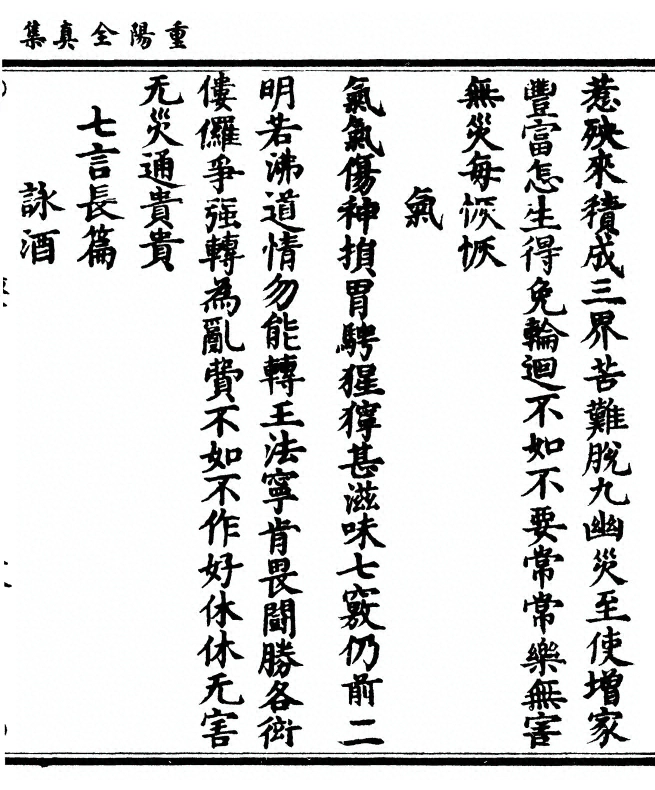 重陽全真集
惹殃來積成三界苦難脫九幽災至使增家
豐富怎生得免輪迴不如不要常常樂無害
無災每恢恢
氣
氣氣傷神損胃騁猩獰甚滋味七竅仍前二
明若沸道情勿能轉王法寧肯畏鬭勝各衒
僂儸爭强轉為亂費不如不作好休休无害
无災通貴貴
七言長篇
詠酒